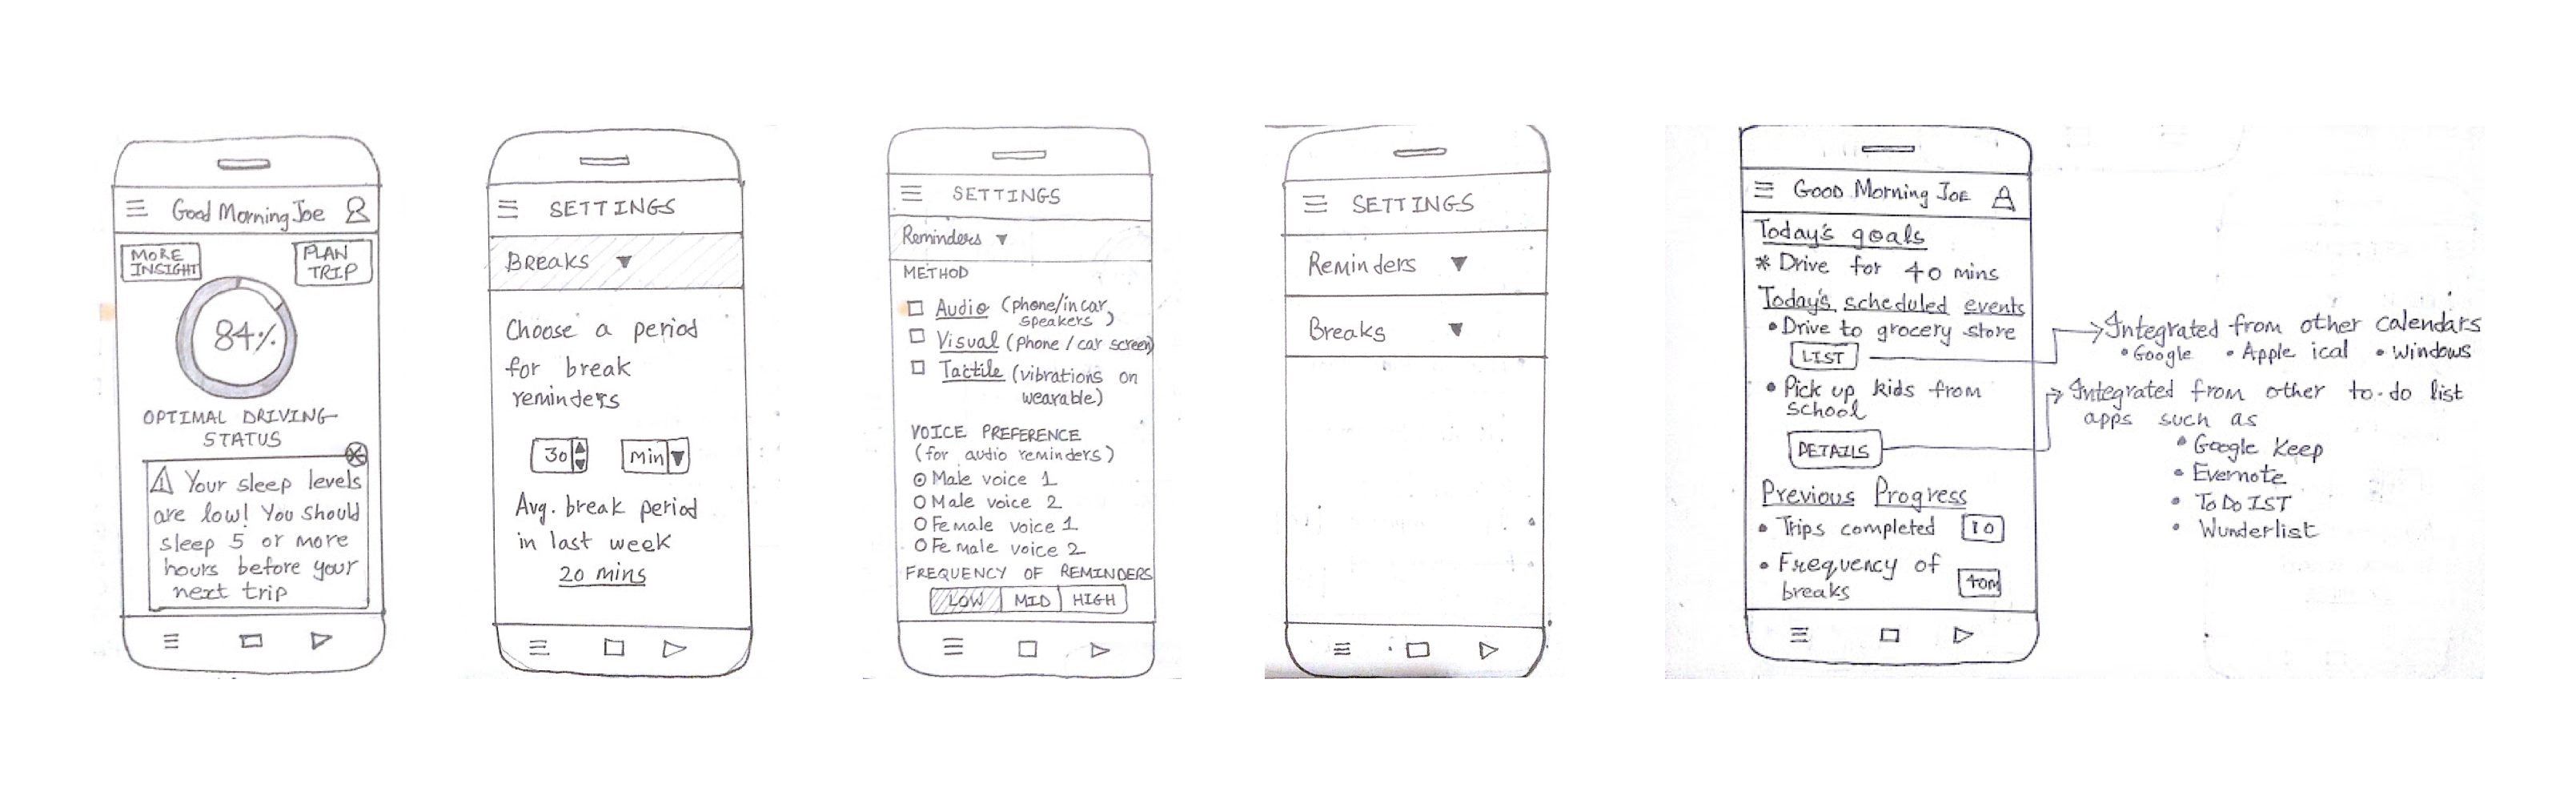 Good Morning Joe
MORE
INSIGHT
PLAN
TRIP
84%
OPTIMAL DRIVING
STATUS
Your sleep levels
are low! You should
sleep 5 or more
hours before your
next trip
SETTINGS
BREAKS
Choose a period
for break
reminders
30
Min
Avg. break period
in last week
20 mins
SETTINGS
Reminders
METHOD
Audio (phone/in car
speakers)
Visual (Phone / car screen)
Tactile (vibrations on
wearable)
VOICE PREFERENCE
(for audio reminders)
Male voice 1
Male voice 2
Female voice 1
Female voice 2
FREQUENCY OF REMINDERS
LOW MID HIGH
SETTINGS
Reminders
Breaks
Good Morning Joe
Today's goals
* Drive for 40 mins
Today's scheduled events
• Drive to grocery store
LIST
• Pick up kids from
school
DETAILS
Previous Progress
• Trips completed 10
• Frequency of
breaks 40m
Integrated from other calendars
• Google • Apple ical • Windows
Integrated from other to-do list
apps such as
• Google Keep
• Evernote
• ToDoIST
• Wunderlist